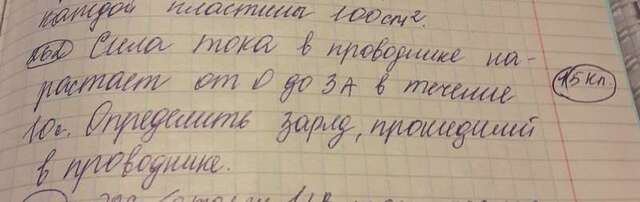 каждой пластины 100см².
№2 Сила тока в проводнике на-
растает от 0 до 3А в течение
10с. Определить заряд, прошедший
в проводнике.
15 Кл.